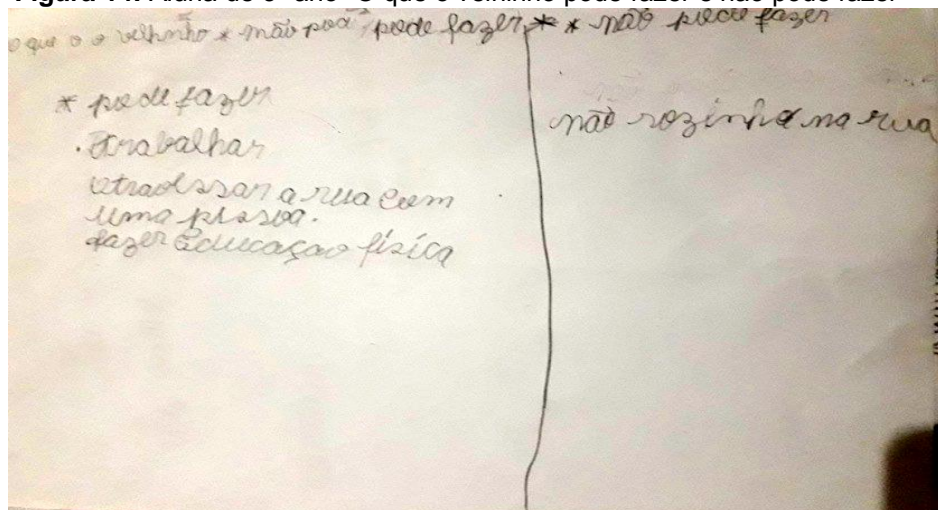 o que o o velhinho * não pod pode fazer * * não pode fazer
* pode fazer
. trabalhar
atraolssar a rua com
uma pessoa.
fazer Educação física
não sozinho na rua